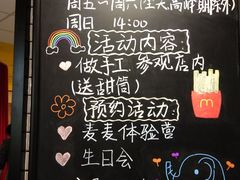 周五~周六(生天高峰期除外)
周日 14:00
活动内容:
做手工.参观店内
(送甜筒)
预约活动:
麦麦体验营
生日会